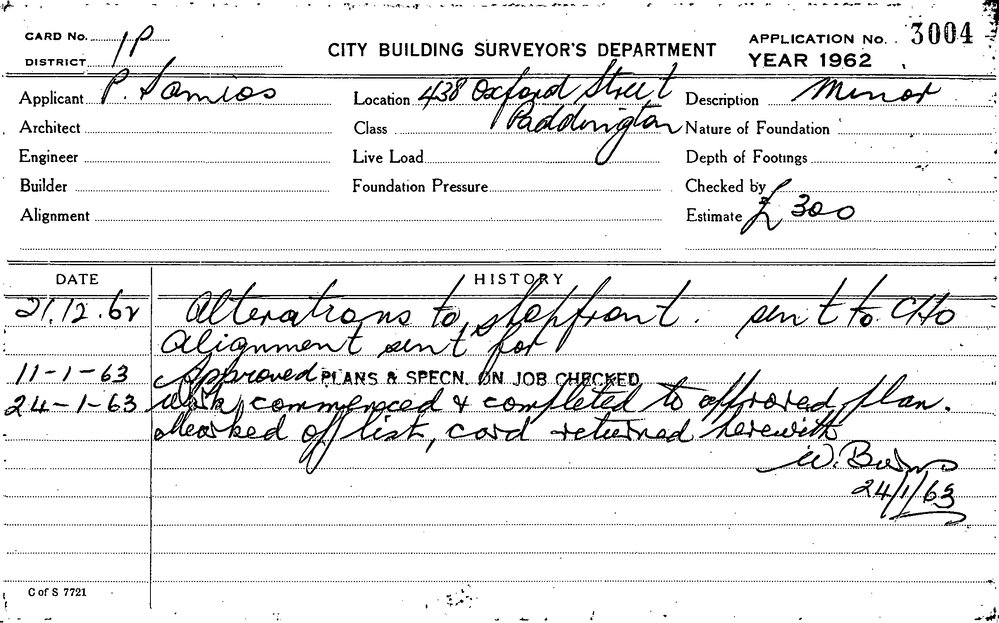 CARD No. 1P
DISTRICT
CITY BUILDING SURVEYOR'S DEPARTMENT
APPLICATION No. 3004
YEAR 1962
Applicant P. Samios Location 438 Oxford Street Description Minor
Architect Class Paddington Nature of Foundation
Engineer Live Load Depth of Footings
Builder Foundation Pressure Checked by
Alignment Estimate £ 300
DATE HISTORY
21.12.62 Alterations to shopfront. sent to CHo
Alignment sent for
11-1-63 Approved PLANS & SPECN. ON JOB CHECKED
24-1-63 Work commenced & completed to approved plan.
Marked off list, card returned herewith
W.
24/1/63
C of S 7721